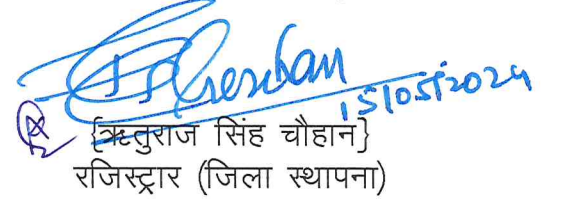 15/05/2024
{ऋतुराज सिंह चौहान}
रजिस्ट्रार (जिला स्थापना)